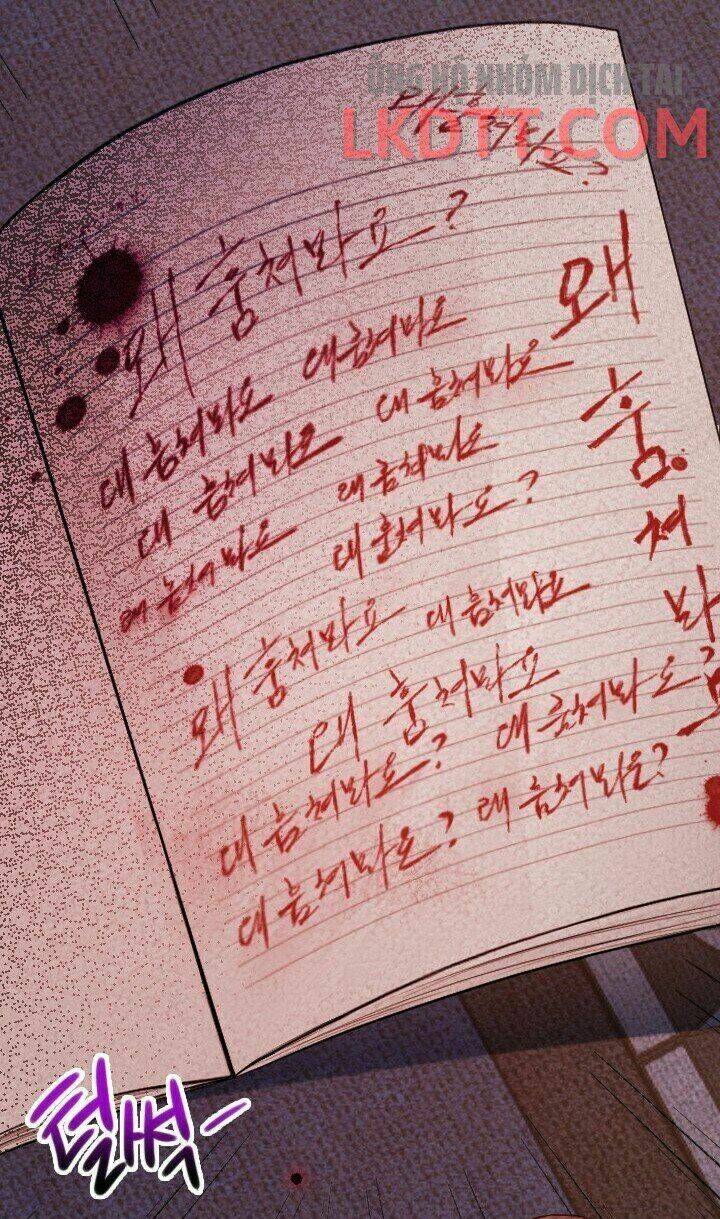 ỦNG HỘ NHÓM DỊCH TẠI
LKDTT.COM
왜 훔쳐봐요?
왜 훔쳐봐요
왜 훔쳐봐요 왜 훔쳐봐요
왜 훔쳐봐요 왜 훔쳐봐요
왜 훔쳐봐요 왜 훔쳐봐요?
왜 훔쳐봐요 왜 훔쳐봐요
왜 훔쳐봐요
왜 훔쳐봐요? 왜 훔쳐봐요?
왜 훔쳐봐요? 왜 훔쳐봐요?
왜 훔쳐봐요
털썩